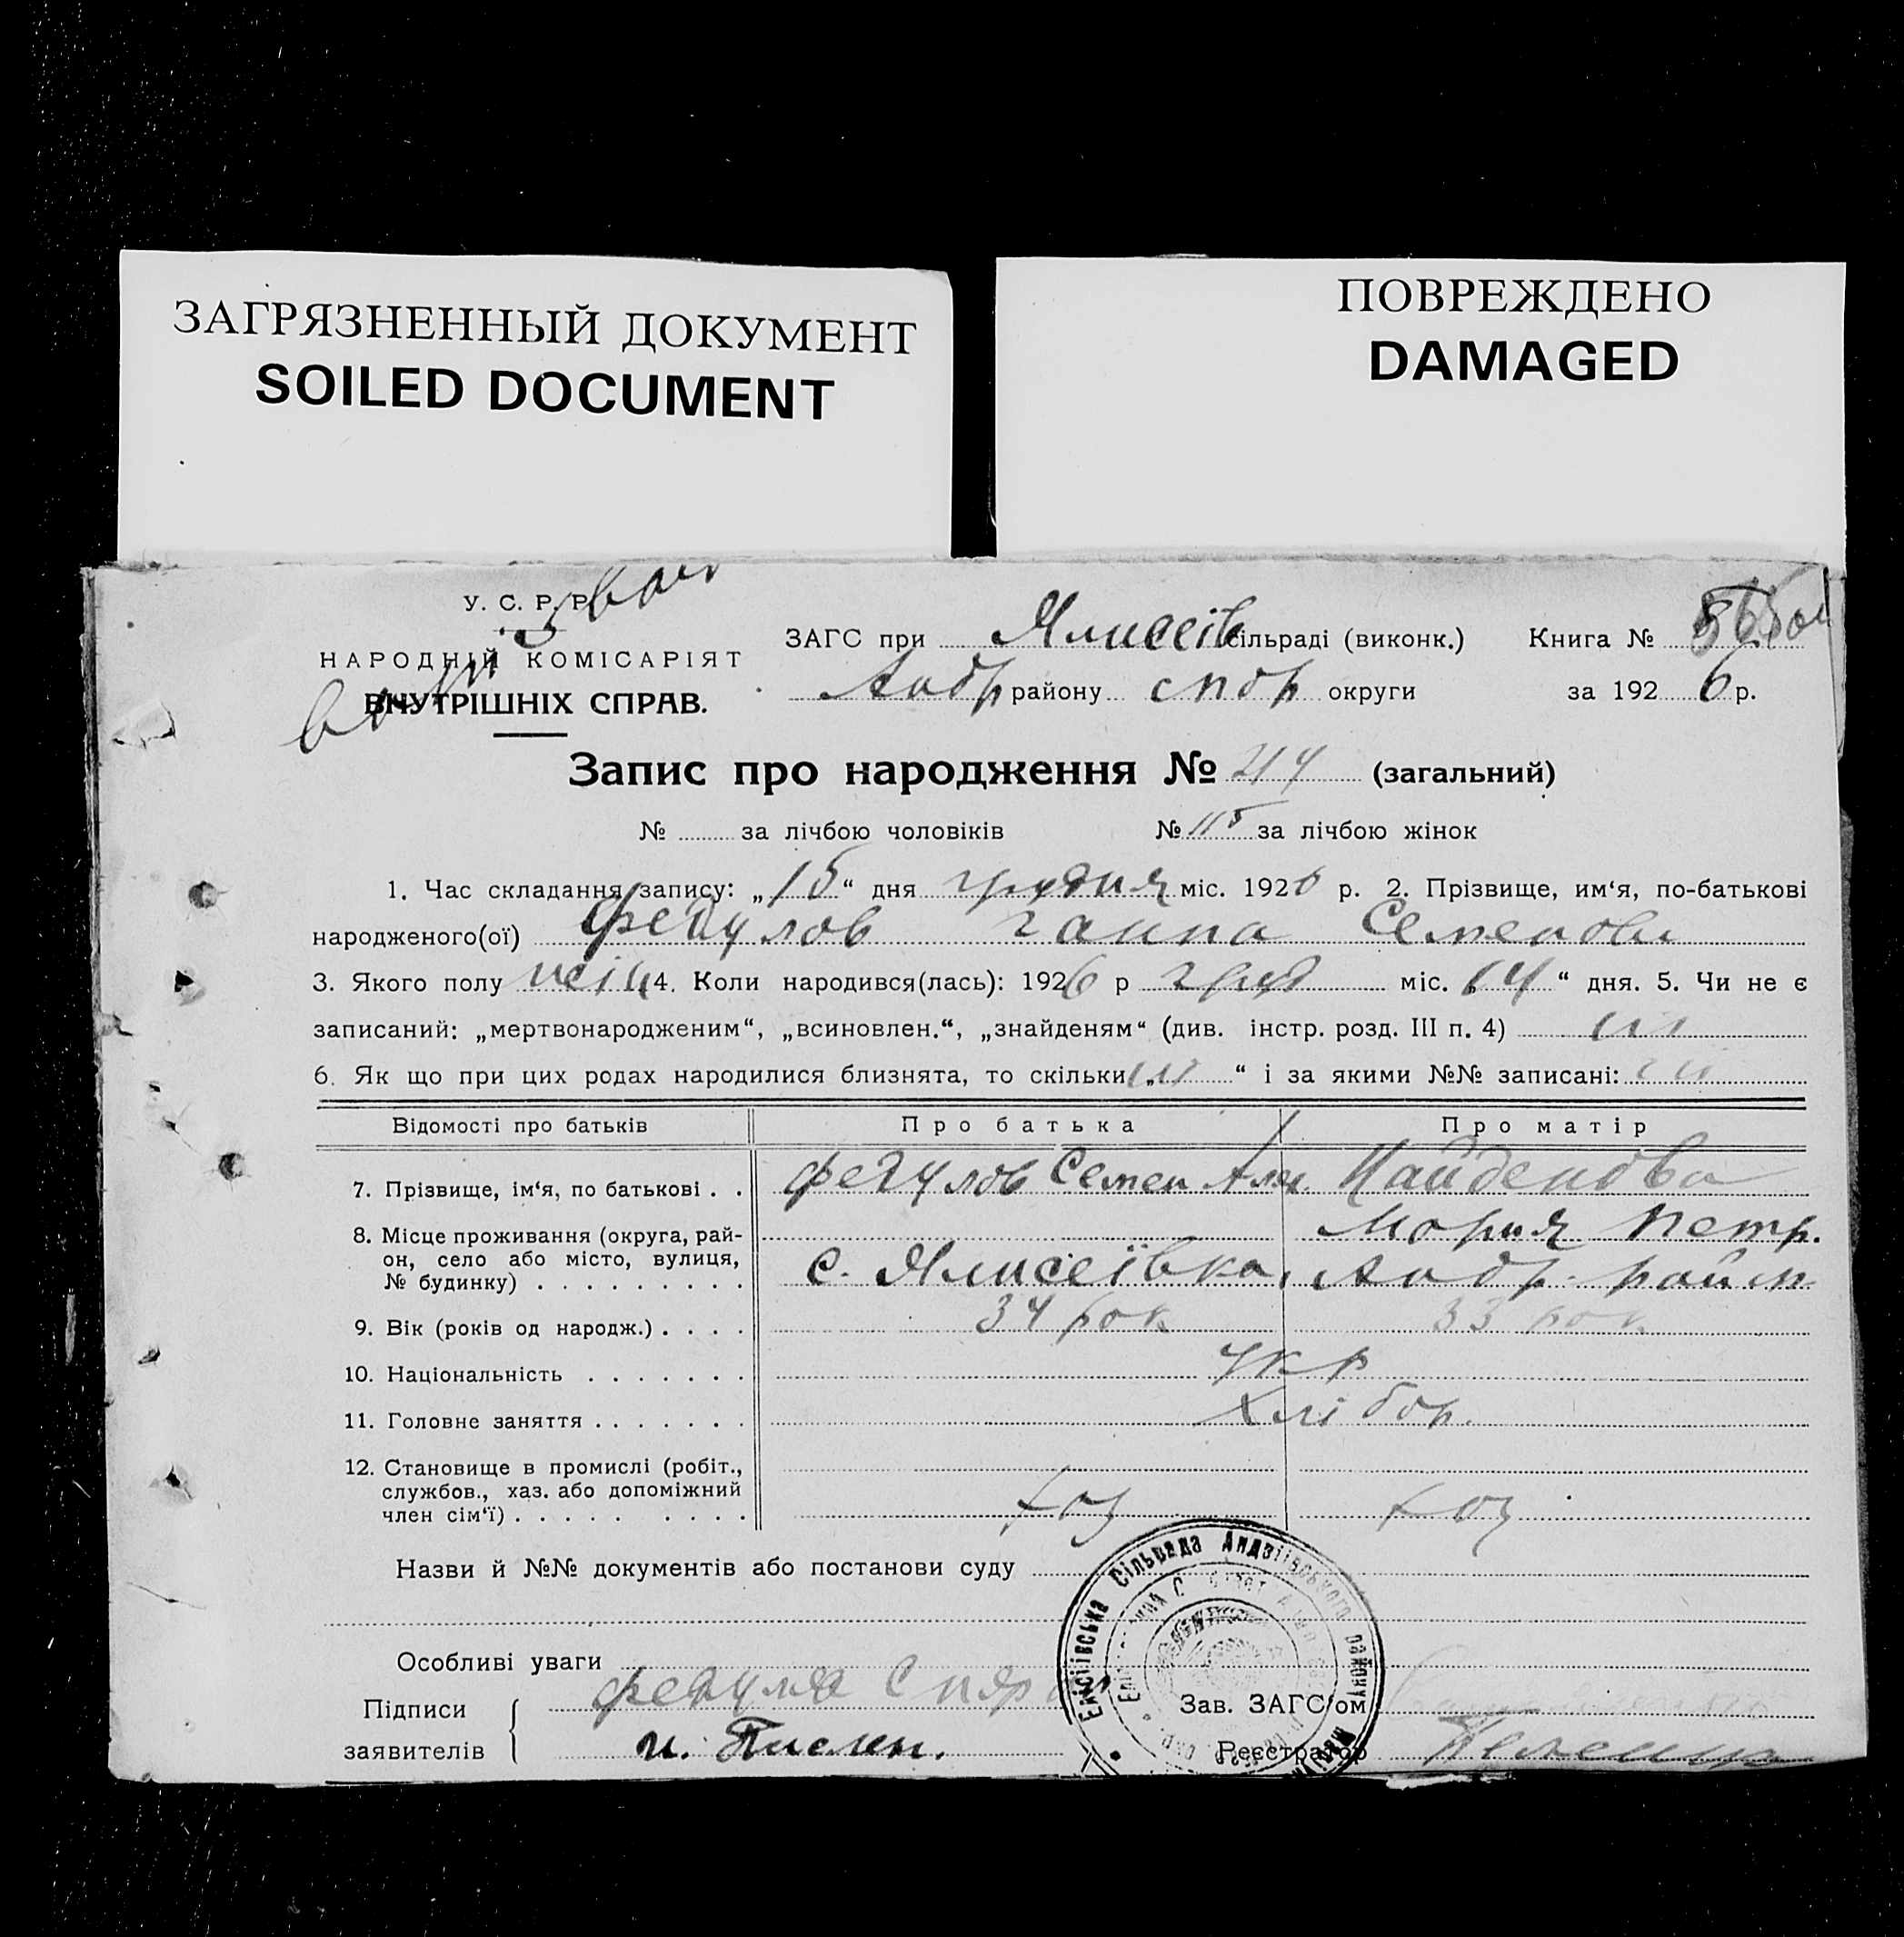 ЗАГРЯЗНЕННЫЙ ДОКУМЕНТ
SOILED DOCUMENT
ПОВРЕЖДЕНО
DAMAGED
У. С. Р. Р.
НАРОДНІЙ КОМІСАРІЯТ
ВНУТРІШНІХ СПРАВ.
ЗАГС при Ялисеїв сільраді (виконк.) Книга №
Андр району округи за 1926 р.
Запис про народження № 214 (загальний)
№ за лічбою чоловіків № 115 за лічбою жінок
1. Час складання запису: „15“ дня грудня міс. 1926 р. 2. Прізвище, им‘я, по-батькові
народженого(ої) Федулов Ганна Семенови
3. Якого полу жін 4. Коли народився(лась): 1926 р груд міс. „14“ дня. 5. Чи не є
записаний: „мертвонародженим“, „всиновлен.“, „знайденям“ (див. інстр. розд. III п. 4)
6. Як що при цих родах народилися близнята, то скільки „ “ і за якими №№ записані:
Відомості про батьків Про батька Про матір
7. Прізвище, ім‘я, по батькові . . Федулов Семен Найденова
Мория Петр.
8. Місце проживання (округа, рай-
он, село або місто, вулиця,
№ будинку) . . . . . . . . . с. Ялисеївка, Андр. район
9. Вік (років од народж.) . . . . 34 рок 33 рок
10. Національність . . . . . . . укр
11. Головне заняття . . . . . . . Хлібор.
12. Становище в промислі (робіт.,
службов., хаз. або допоміжний
член сім‘ї) . . . . . . . . . хоз хоз
Назви й №№ документів або постанови суду
Особливі уваги
Підписи
заявителів
Федулов
н. Писмен.
Зав. ЗАГС‘ом
Реєстратор
Сільрада Андріївського району